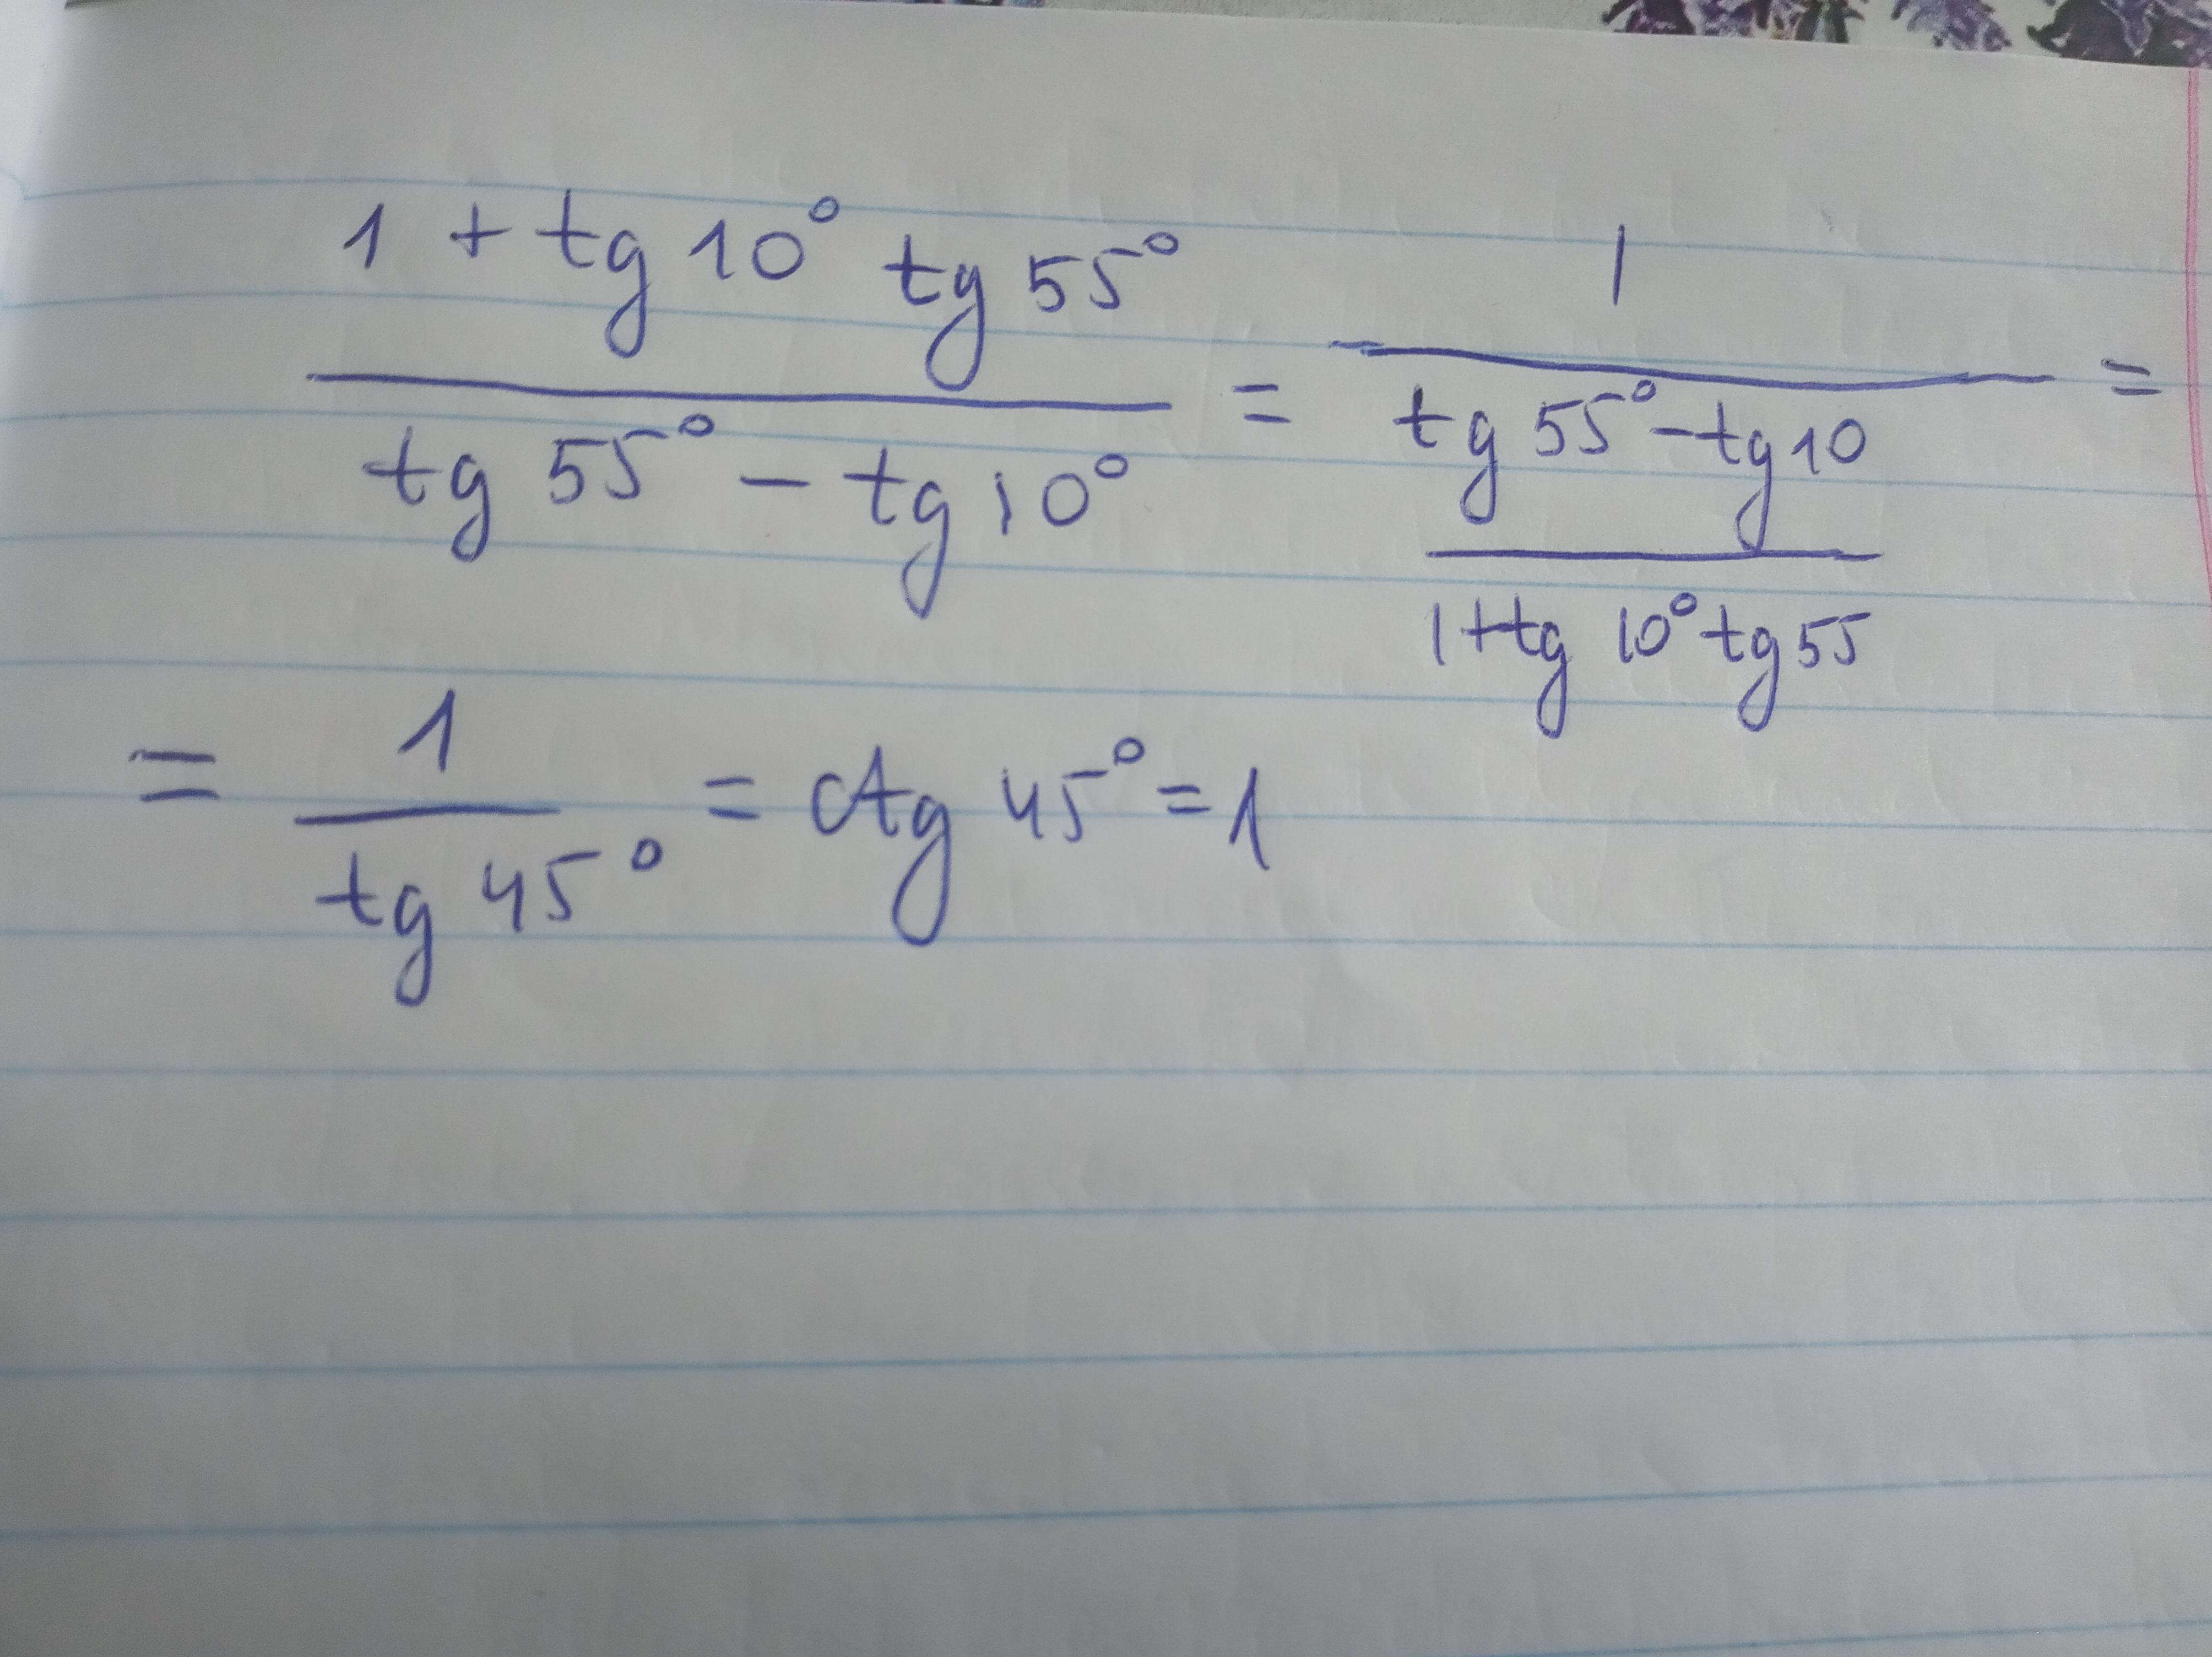 1 + tg 10° tg 55°
/
tg 55° - tg 10°
=
1
/
tg 55° - tg 10
/
1 + tg 10° tg 55
=
= 1 / tg 45° = ctg 45° = 1